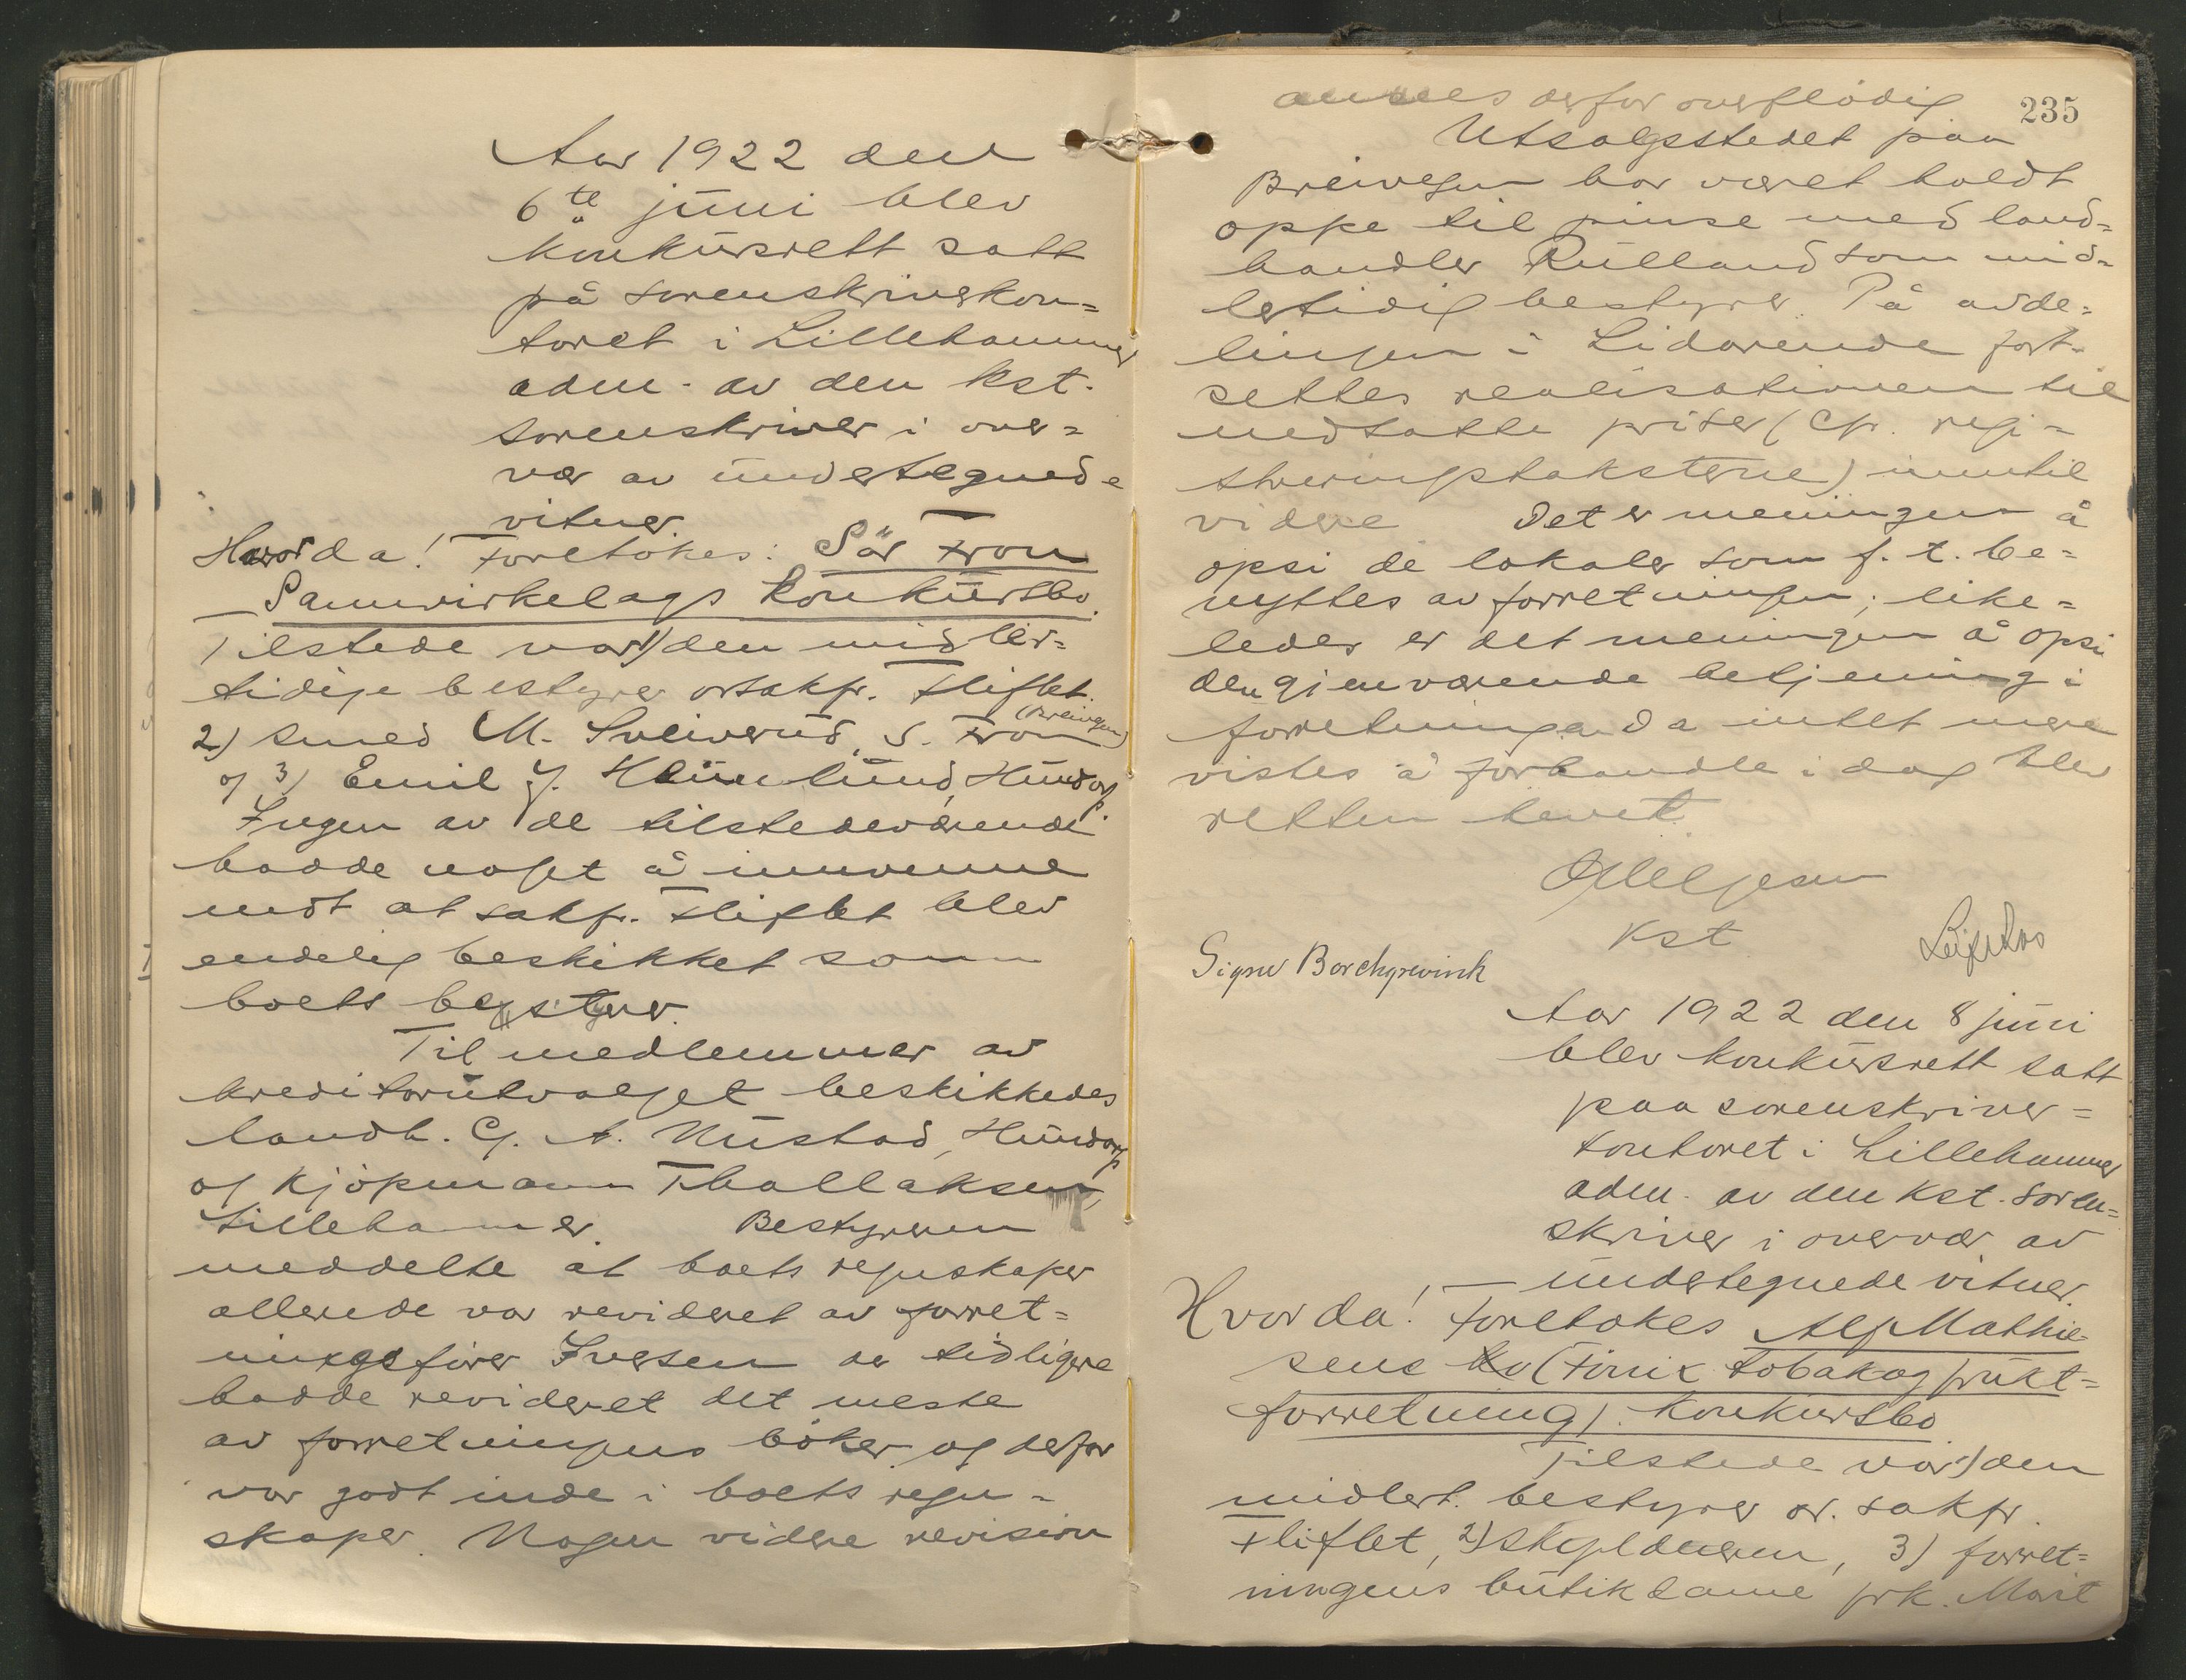 Aar 1922 den
6te juni blev
konkursrett satt
på sorenskriverkon=
toret i Lillehammer
adm. av den kst.
sorenskriver i over=
vær av undertegnede
vitner
Hvorda! Foretokes: Sör Fron
Samvirkelags Konkursbo.
Tilstede var 1) den midler=
tidige bestyrer o.r.sakfr. Fliflet.
2) smed M. Sveiverud, S. Fron (Breivegen)
og 3) Emil J. Hundorp
Ingen av de tilstedeværende
hadde noget å innvenne
mot at sakfr. Fliflet blev
endelig beskikket som
boets bestyrer.
Til medlemmer av
kreditorutvalget beskikkedes
landh. C. A. Nustad, Hundorp
og Kjöpmann Thallaksen,
Lillehammer. Bestyreren
meddelte at boets regnskaper
allerede var revideret av forret=
ningsförer Iversen der tidligere
hadde revideret det meste
av forretningens böker og derfor
var godt inde i boets regn=
skaper. Nogen videre revision
235
ansees derfor overflödig
Utsalgsstedet paa
Breivegen har været holdt
oppe til pinse med land=
handler Rulland som mid=
lertidig bestyrer. På avde=
lingen i Lidarende fort=
settes realisationen til
nedsatte priser (cfr. regi=
streringstaksterne) inntil
videre Det er meningen å
opsi de lokaler som f. t. be=
nyttes av forretningen; like=
ledes er det meningen å opsi
den gjenværende betjening i
forretningen. Da intet mere
vistes å forhandle i dag blev
retten hevet.
kst
Signe Borchgrevink
Aar 1922 den 8 juni
blev konkursrett satt
paa sorenskriver=
kontoret i Lillehammer
adm. av den kst. soren=
skriver i overvær av
undertegnede vitner.
Hvorda! Foretokes Alf Mathie=
sens bo (Fönix tobak og frukt=
forretning) konkursbo
Tilstede var 1) den
midlert. bestyrer o.r. sakfr.
Fliflet, 2) skyldneren, 3) forret=
ningens butikdame frk. Marit